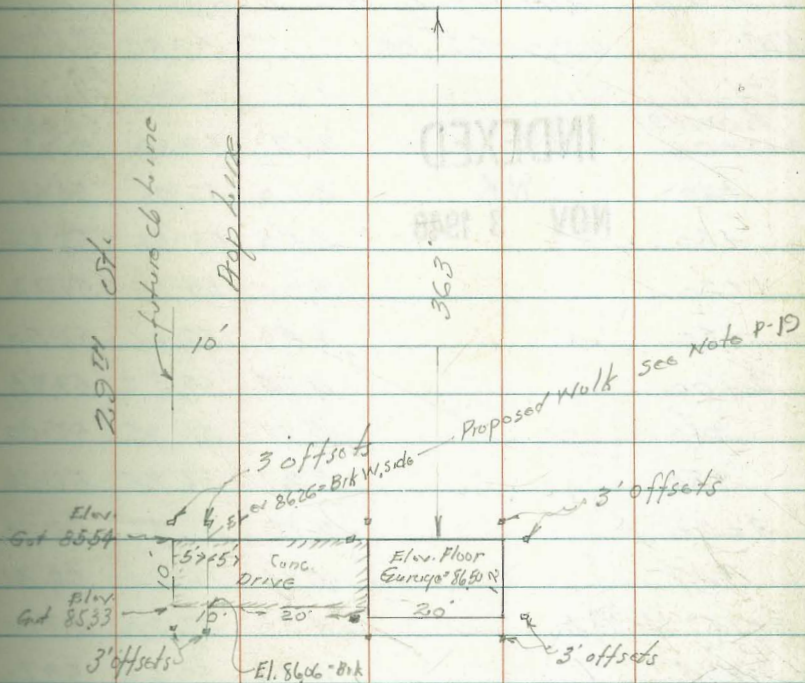 INDEXED
NOV 3 1948
29TH St.
future Cb Line
Prop Line
10'
363'
Proposed Walk see Note P-19
3' offsets
El 86.26 = Brk W. side
3' offsets
Elev.
Gut 85.54
5' 5'
Conc.
Drive
10'
Elev. Floor
Garage = 86.50
Elev.
Gut 85.33
10' 20'
20'
3' offsets
El. 86.06 = Brk
3' offsets